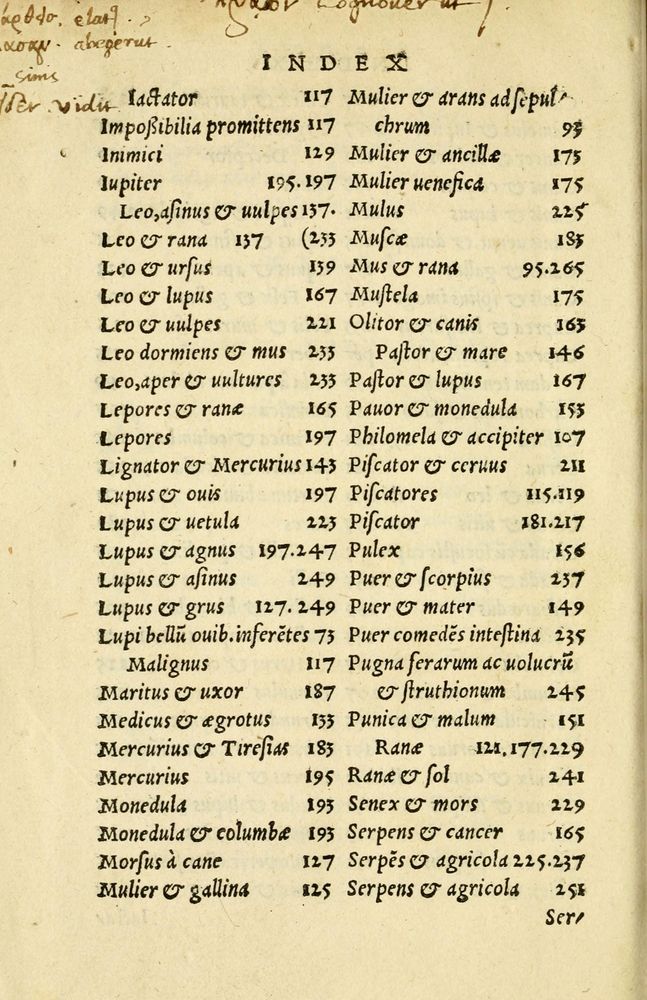 INDEX
Iactator 117
Impoßibilia promittens 117
Inimici 129
Iupiter 195.197
Leo,asinus & uulpes 137.
Leo & rana 137 (233
Leo & ursus 139
Leo & lupus 167
Leo & uulpes 221
Leo dormiens & mus 233
Leo,aper & uultures 233
Lepores & ranæ 165
Lepores 197
Lignator & Mercurius 143
Lupus & ouis 197
Lupus & uetula 223
Lupus & agnus 197.247
Lupus & asinus 249
Lupus & grus 127.249
Lupi bellũ ouib.inferẽtes 73
Malignus 117
Maritus & uxor 187
Medicus & ægrotus 133
Mercurius & Tiresias 183
Mercurius 195
Monedula 193
Monedula & columbæ 193
Morsus à cane 127
Mulier & gallina 125
Mulier & arans ad sepul-
chrum 93
Mulier & ancillæ 175
Mulier uenefica 175
Mulus 225
Muscæ 183
Mus & rana 95.265
Mustela 175
Olitor & canis 163
Pastor & mare 146
Pastor & lupus 167
Pauor & monedula 153
Philomela & accipiter 107
Piscator & ceruus 211
Piscatores 115.119
Piscator 181.217
Pulex 156
Puer & scorpius 237
Puer & mater 149
Puer comedẽs intestina 235
Pugna ferarum ac uolucrũ
& struthionum 245
Punica & malum 151
Ranæ 121.177.229
Ranæ & sol 241
Senex & mors 229
Serpens & cancer 165
Serpẽs & agricola 225.237
Serpens & agricola 251
Ser-